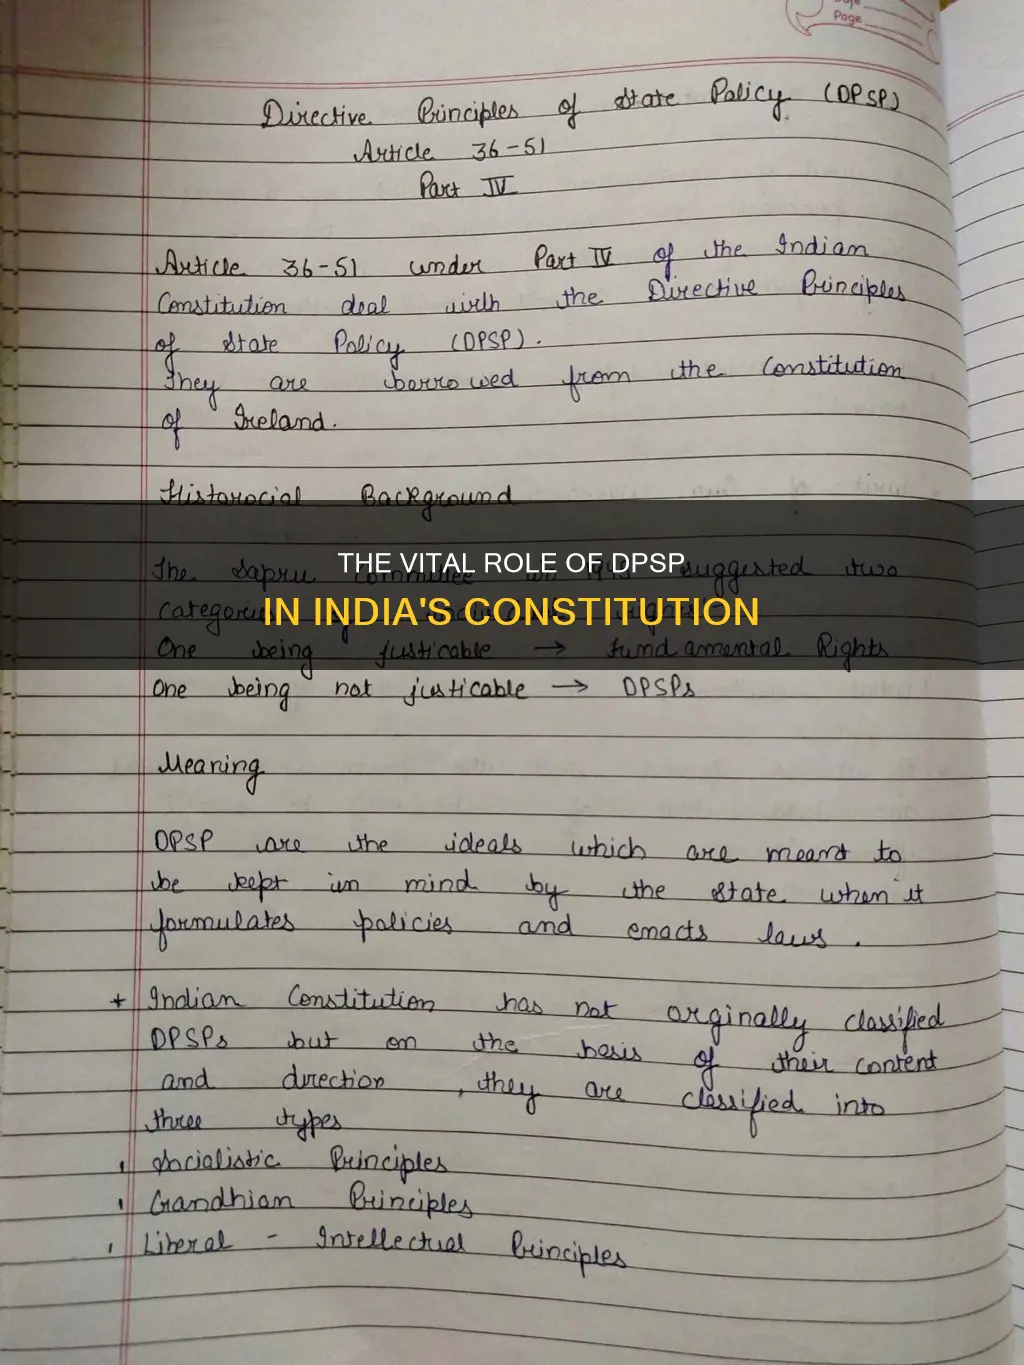 Page
Directive Principles of State Policy (DPSP)
Article 36-51
Part IV
Article 36-51 under Part IV of the Indian
Constitution deal with the Directive Principles
of State Policy (DPSP).
They are borrowed from the Constitution
of Ireland.
Historocial Background
The Sapru Committee 1945 suggested two
THE VITAL ROLE OF DPSP
categories
IN INDIA'S CONSTITUTION
One being justicable → Fundamental Rights
One being not justicable → DPSPs
Meaning
DPSP are the ideals which are meant to
be kept in mind by the State when it
formulates policies and enacts laws.
+ Indian Constitution has not orginally classified
DPSPs but on the basis of their content
and direction, they are classified into
three types
, Socialistic Principles
, Gandhian Principles
, Liberal - Intellectual Principles